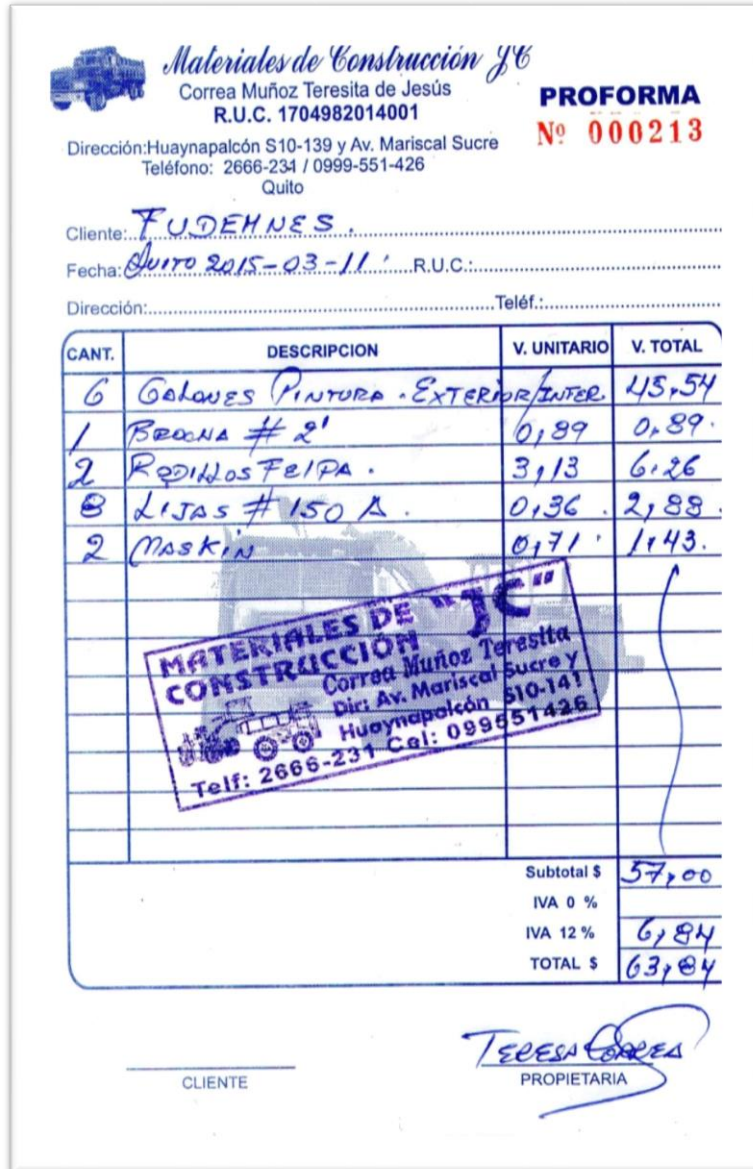 Materiales de Construcción JC
Correa Muñoz Teresita de Jesús
R.U.C. 1704982014001
PROFORMA
Nº 000213
Dirección:Huaynapalcón S10-139 y Av. Mariscal Sucre
Teléfono: 2666-231 / 0999-551-426
Quito
Cliente: FUDEMNES.
Fecha: Quito 2015-03-11 R.U.C.:
Dirección: Teléf.:
CANT. DESCRIPCION V. UNITARIO V. TOTAL
6 Galones Pintura . Exterior/Inter. 45,54
1 Brocha # 2' 0,89 0,89.
2 Rodillos Felpa. 3,13 6,26
8 Lijas # 150 A. 0,36. 2,88.
2 Maskin 0,71 1,43.
MATERIALES DE "JC"
CONSTRUCCIÓN
Correa Muñoz Teresita
Dir: Av. Mariscal Sucre y
Huaynapalcón S10-141
Telf: 2666-231 Cel: 099551426
Subtotal $ 57,00
IVA 0 %
IVA 12 % 6,84
TOTAL $ 63,84
Teresa Correa
CLIENTE PROPIETARIA